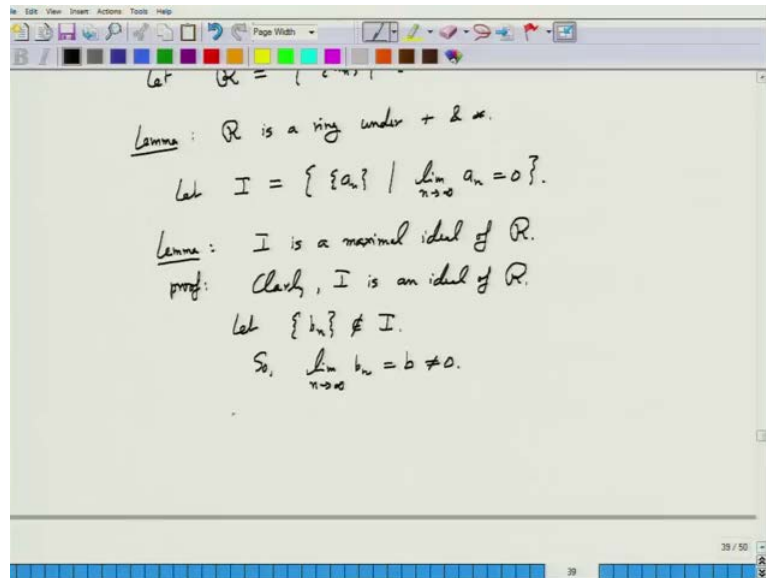 File Edit View Insert Actions Tools Help
Page Width
Let R = {
Lemma : R is a ring under + & *.
Let I = { {aₙ} | lim n→∞ aₙ = 0 }.
Lemma : I is a maximal ideal of R.
proof: Clearly, I is an ideal of R.
Let {bₙ} ∉ I.
So, lim n→∞ bₙ = b ≠ 0.
39 / 50
39